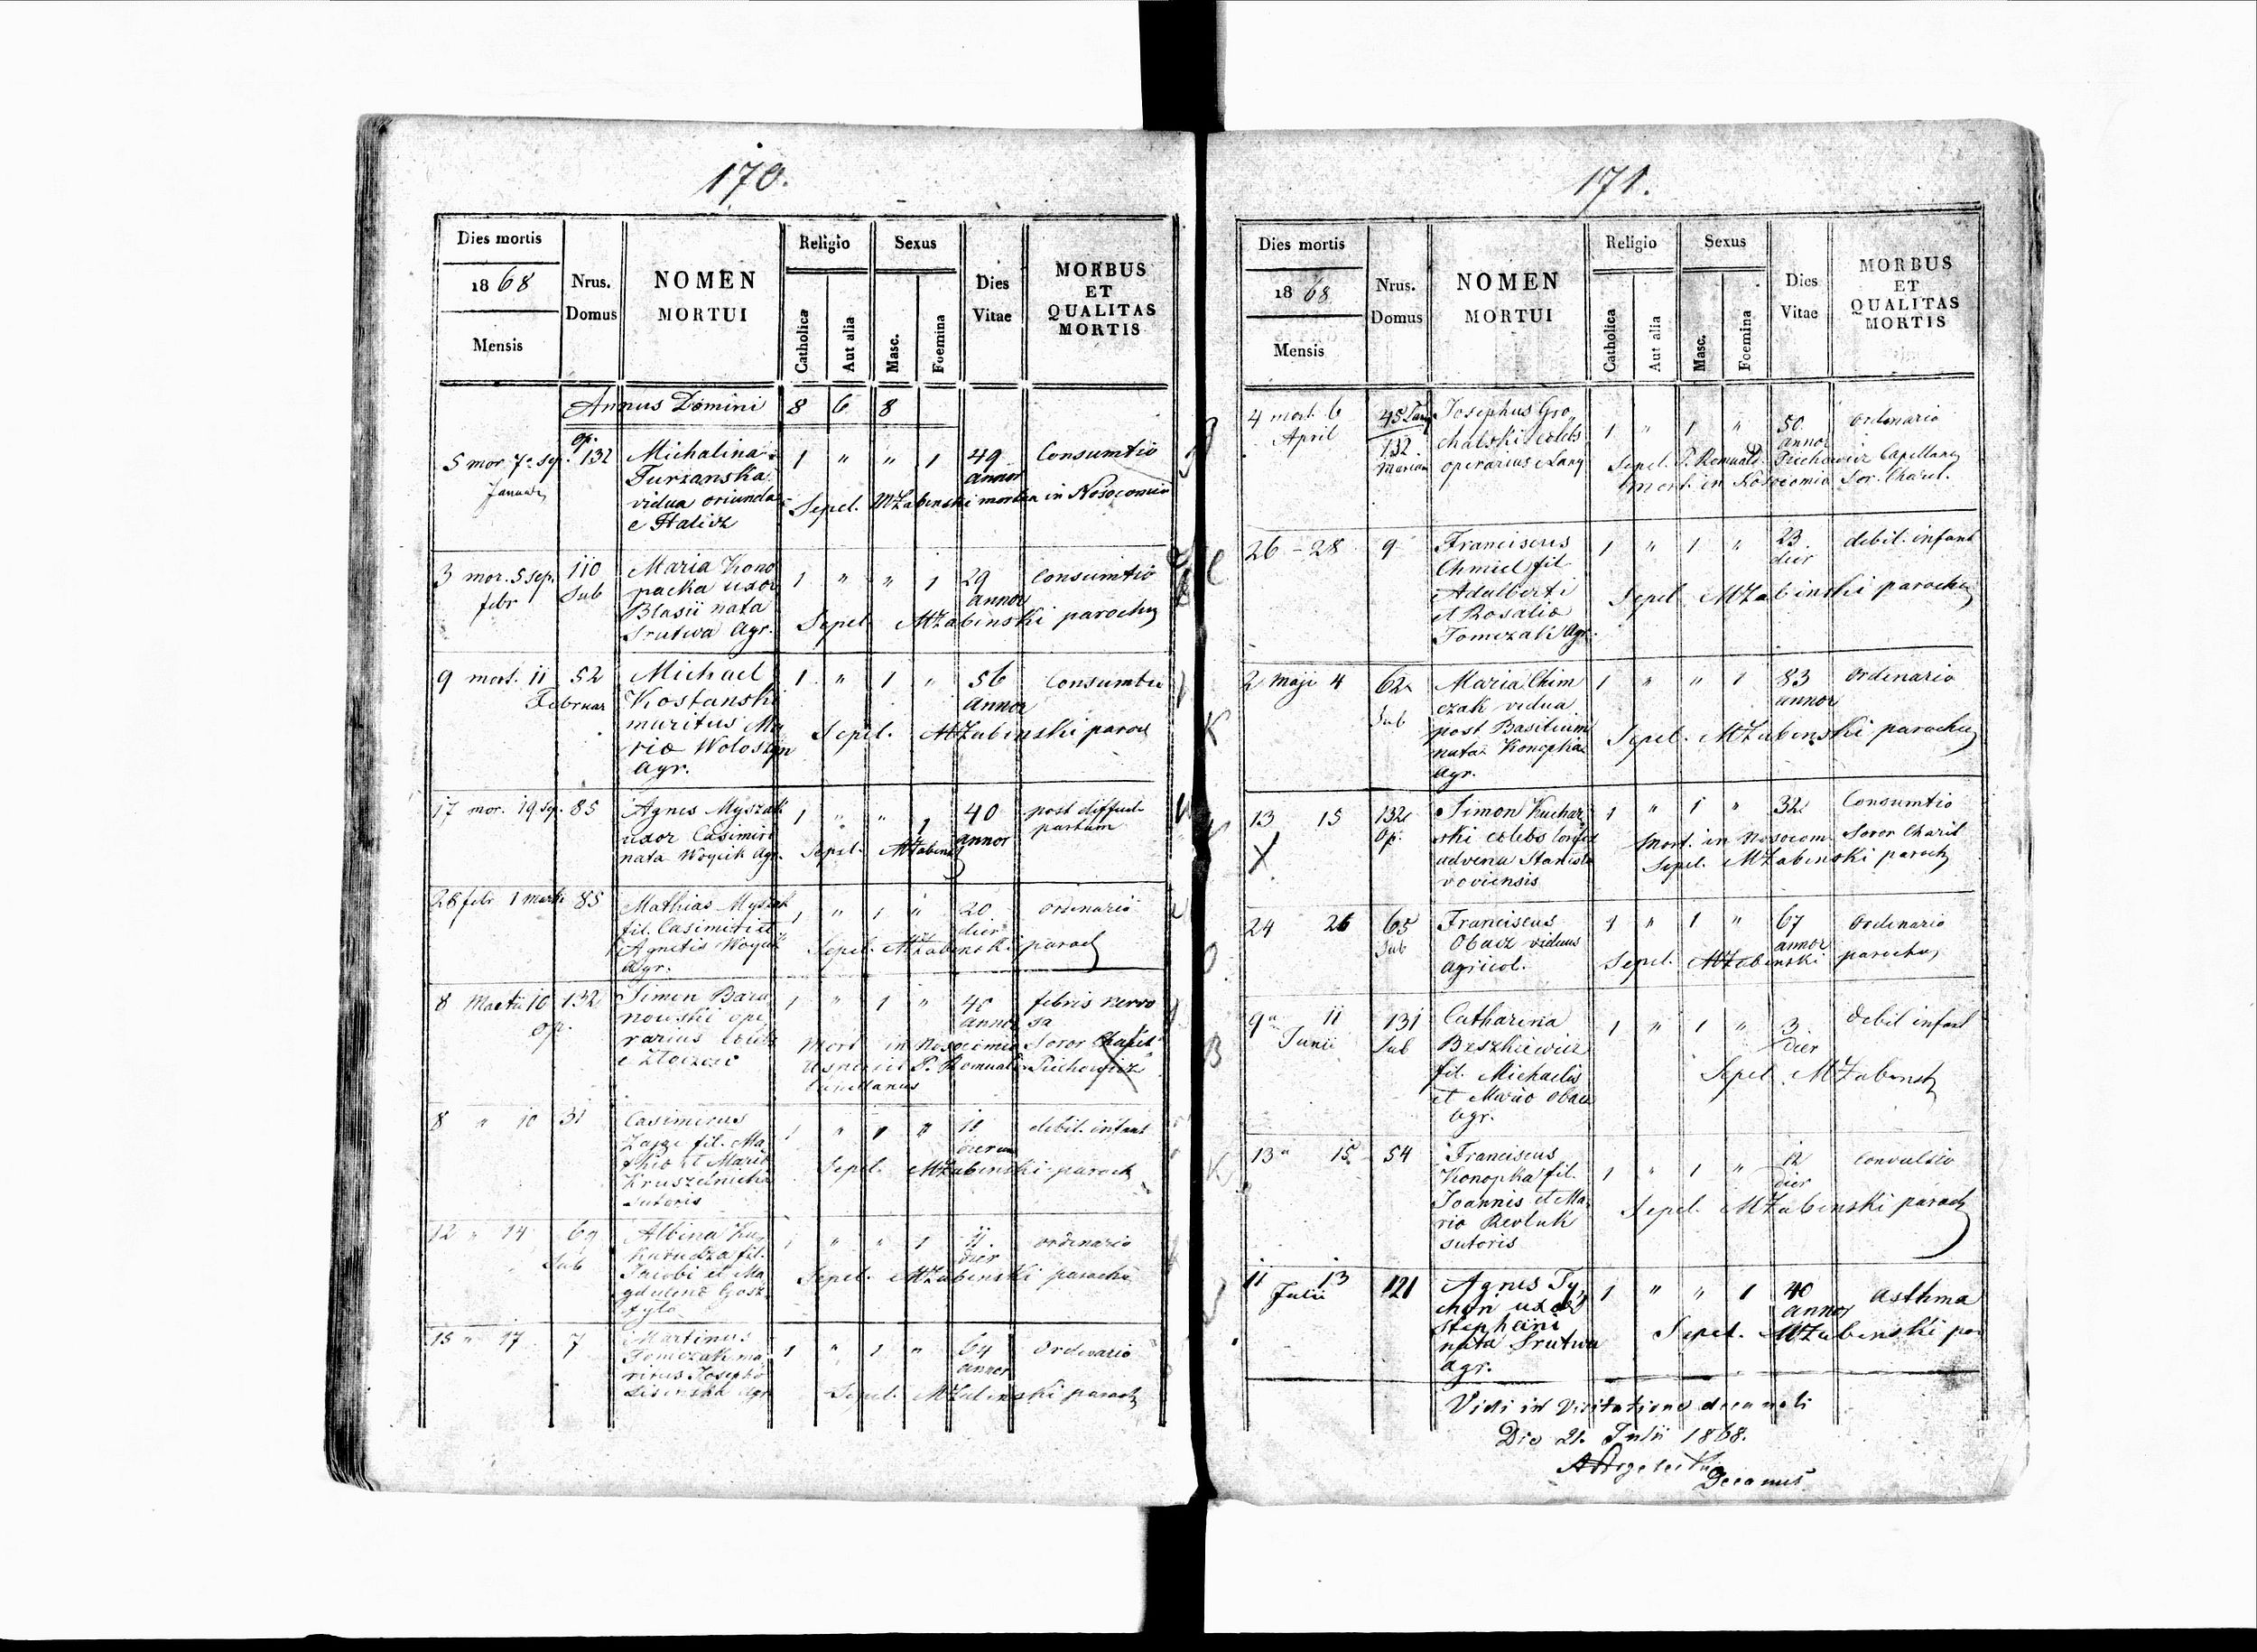 170.
Dies mortis
1868
Mensis
Nrus. Domus
NOMEN MORTUI
Religio
Catholica
Aut alia
Sexus
Masc.
Foemina
Dies Vitae
MORBUS ET QUALITAS MORTIS
Annus Domini 8 6 8
5 mor. 7 sep. 132 Michalina 1 " " 1 49 Consumtio
Turzanska annor
vidua oriunda Sepel. MZabinski mortua in Nosocomio
e Halicz
3 mor. 5 sep. 110 Maria Kono 1 " " 1 29 Consumtio
febr Sub packa uxor annor
Blasii nata Sepel. MZabinski parochus
Srutwa Agr.
9 mort. 11 52 Michael 1 " 1 " 56 Consumtio
Februar Kostanski annor
maritus Ma Sepel. MZabinski paroch
Agr.
17 mor. 19 sep. 85 Agnes Myszak 1 " " 1 40 post difficil
uxor Casimiri annor partum
nata Woycik Agr. Sepel. MZabinski
28 febr 1 martii 85 Mathias Myszak 1 " 1 " 20 ordinario
fil. Casimiri et dier
Agnetis Woycik Sepel. MZabinski paroch
Agr.
8 Martii 10 132 Simon Bara 1 " 1 " 40 febris nervo
op. nowski ope annor sa
rarius Mort in Nosocomio Soror Charit
P. Romuald Piechowicz
Capellanus
8 " 10 31 Casimirus 1 " 1 " 11 debil. infant
Zajgc fil. Ma dierum
Sepel. MZabinski paroch
sutoris
12 " 14 69 Albina Ku 1 " " 1 11 ordinario
Sub fil. dier
Jacobi et Ma Sepel. MZabinski parochu
15 " 17 7 Martinus 1 " 1 " 64 Ordinario
Tomczak ma annor
ritus Josepha Sepel. MZabinski paroch
Agr
171.
Dies mortis
1868
Mensis
Nrus. Domus
NOMEN MORTUI
Religio
Catholica
Aut alia
Sexus
Masc.
Foemina
Dies Vitae
MORBUS ET QUALITAS MORTIS
4 mort. 6 45 Josephus Gro 1 " 1 " 50 ordinario
April 132 chalski celebs annor
operarius Sepel. P. Romuald Piechowicz Capellanus
mort. in Nosocomio Sor. Charit.
26 - 28 9 Franciscus 1 " 1 " 23 debil. infant
Chmiel fil. dier
Adalberti Sepel MZabinski parochus
et Rosalia
Tomczak Agr.
2 Maji 4 62 Maria Chim 1 " " 1 83 Ordinario
Sub czak vidua annor
post Basilium Sepel. MZabinski parochus
nata Konopka
Agr.
13 15 132 Simon Kuchar 1 " 1 " 32 Consumtio
op. ski celebs Mort. in Nosocom. Soror Charit
advena Stanisla Sepel. MZabinski paroch
voviensis
24 26 65 Franciscus 1 " 1 " 67 Ordinario
Sub Obacz viduus annor
agricol. Sepel. MZabinski parochus
9 11 131 Catharina 1 " 1 " 3 Debil infant
Junii Sub dier
fil. Michaelis Sepel. MZabinski
et Maria
Agr.
13 15 54 Franciscus 1 " 1 " 12 Convulsio
Konopka fil. dier
Joannis et Ma Sepel. MZabinski paroch
ria
sutoris
11 13 121 Agnes Ty 1 " " 1 40 Asthma
Julii chon uxor annor
Stephani Sepel. MZabinski par
nata Srutwa
agr.
Vidi in Visitatione decanali
Die 21. Julii 1868.
Decanus